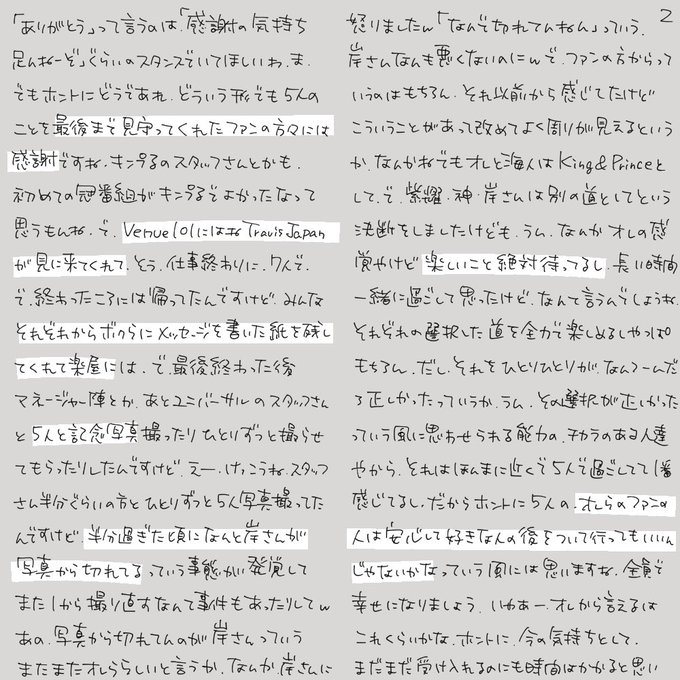 「ありがとう」って言うのは、「感謝の気持ち
足んねーぞ」ぐらいのスタンスでいてほしいわ、ま、
でもホントにどうであれ、どういう形でも5人の
ことを最後まで見守ってくれたファンの方々には
感謝ですね、キンプるのスタッフさんとかも、
初めての冠番組がキンプるでよかったなって
思うもんね、で、Venue101にはねTravis Japan
が見に来てくれて、そう、仕事終わりに、7人で、
で、終わったころには帰ってたんですけど、みんな
それぞれからボクらにメッセージを書いた紙を残し
てくれて楽屋には、で、最後終わった後
マネージャー陣とか、あとユニバーサルのスタッフさん
と5人と記念写真撮ったりひとりずっと撮らせ
てもらったりしたんですけど、えー、けっこうね、スタッフ
さん半分ぐらいの方とひとりずつと5人写真撮ってた
んですけど、半分過ぎた頃になんと岸さんが
写真から切れてるっていう事態が発覚して
また1から撮り直すなんて事件もあったりしてw
あの、写真から切れてんのが岸さんっていう
またまたオレららしいと言うか、なんか、岸さんに
2
怒りましたw「なんで切れてんねん」っていう、
岸さんなんも悪くないのにwで、ファンの方からって
いうのはもちろん、それ以前から感じてたけど
こういうことがあって改めてよく周りが見えるという
か、なんかねでもオレと海人はKing&Princeと
して、で、紫耀、神、岸さんは別の道としてという
決断をしましたけども、うん、なんかオレの感
覚やけど楽しいこと絶対待ってるし、長い時間
一緒に過ごして思ったけど、なんて言うんでしょうね、
それぞれの選択した道を全力で楽しめるしやっぱ
もちろん、だし、それをひとりひとりが、なんつーんだ
ろ正しかったっていうか、うん、その選択が正しかった
っていう風に思わせられる能力の、チカラのある人達
やから、それはほんまに近くで5人で過ごしてて1番
感じてるし、だからホントに5人の、オレらのファンの
人は安心して好きな人の後をついて行ってもいいん
じゃないかなっていう風には思いますね、全員で
幸せになりましょう、いやあー、オレから言えるは
これくらいかな、ホントに、今の気持ちとして、
まだまだ受け入れるのにも時間はかかると思い